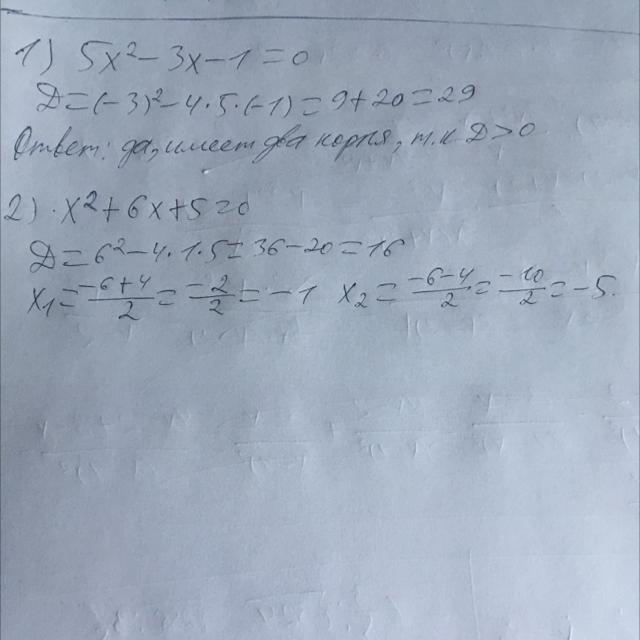 1) 5x² - 3x - 1 = 0
D = (-3)² - 4 · 5 · (-1) = 9 + 20 = 29
Ответ: да, имеет два корня, т.к D > 0
2) x² + 6x + 5 = 0
D = 6² - 4 · 1 · 5 = 36 - 20 = 16
x₁ = (-6 + 4)/2 = -2/2 = -1 x₂ = (-6 - 4)/2 = -10/2 = -5.